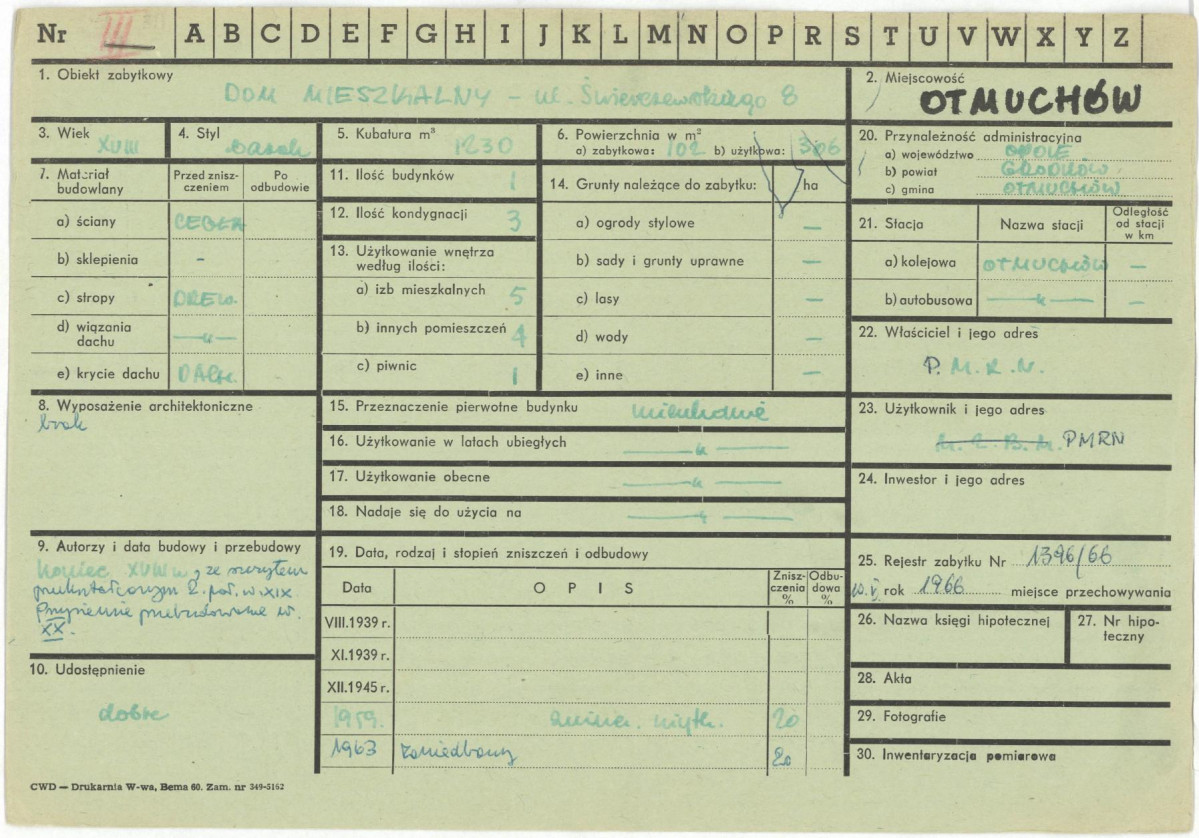 Nr III A B C D E F G H I J K L M N O P R S T U V W X Y Z
1. Obiekt zabytkowy
DOM MIESZKALNY – ul. Świerczewskiego 8
2. Miejscowość
OTMUCHÓW
3. Wiek
XVIII
4. Styl
barok
5. Kubatura m³
1230
6. Powierzchnia w m²
a) zabytkowa: 102 b) użytkowa: 306
20. Przynależność administracyjna
a) województwo OPOLE
b) powiat GRODKÓW
c) gmina OTMUCHÓW
7. Materiał budowlany
Przed zniszczeniem
Po odbudowie
a) ściany CEGŁA
b) sklepienia -
c) stropy DREW.
d) wiązania dachu —„—
e) krycie dachu DACH.
11. Ilość budynków 1
12. Ilość kondygnacji 3
13. Użytkowanie wnętrza
według ilości:
a) izb mieszkalnych 5
b) innych pomieszczeń 4
c) piwnic 1
14. Grunty należące do zabytku: ha
a) ogrody stylowe —
b) sady i grunty uprawne —
c) lasy —
d) wody —
e) inne —
21. Stacja
Nazwa stacji
Odległość od stacji w km
a) kolejowa OTMUCHÓW —
b) autobusowa —„— —
22. Właściciel i jego adres
P. M. R. N.
8. Wyposażenie architektoniczne
brak
15. Przeznaczenie pierwotne budynku mieszkalne
16. Użytkowanie w latach ubiegłych —„—
17. Użytkowanie obecne —„—
18. Nadaje się do użycia na —„—
23. Użytkownik i jego adres
M. Z. B. M. PMRN
24. Inwestor i jego adres
9. Autorzy i data budowy i przebudowy
koniec XVIII w, ze szczytem
przekształconym 2. poł. w. XIX
Przyziemie przebudowane w.
XX.
10. Udostępnienie
dobre
19. Data, rodzaj i stopień zniszczeń i odbudowy
Data
OPIS
Zniszczenia %
Odbudowa %
VIII.1939 r.
XI.1939 r.
XII.1945 r.
1959. 20
1963 zaniedbany 20
25. Rejestr zabytku Nr 1396/66
10.V. rok 1966 miejsce przechowywania
26. Nazwa księgi hipotecznej
27. Nr hipoteczny
28. Akta
29. Fotografie
30. Inwentaryzacja pomiarowa
CWD — Drukarnia W-wa, Bema 60. Zam. nr 349-5162